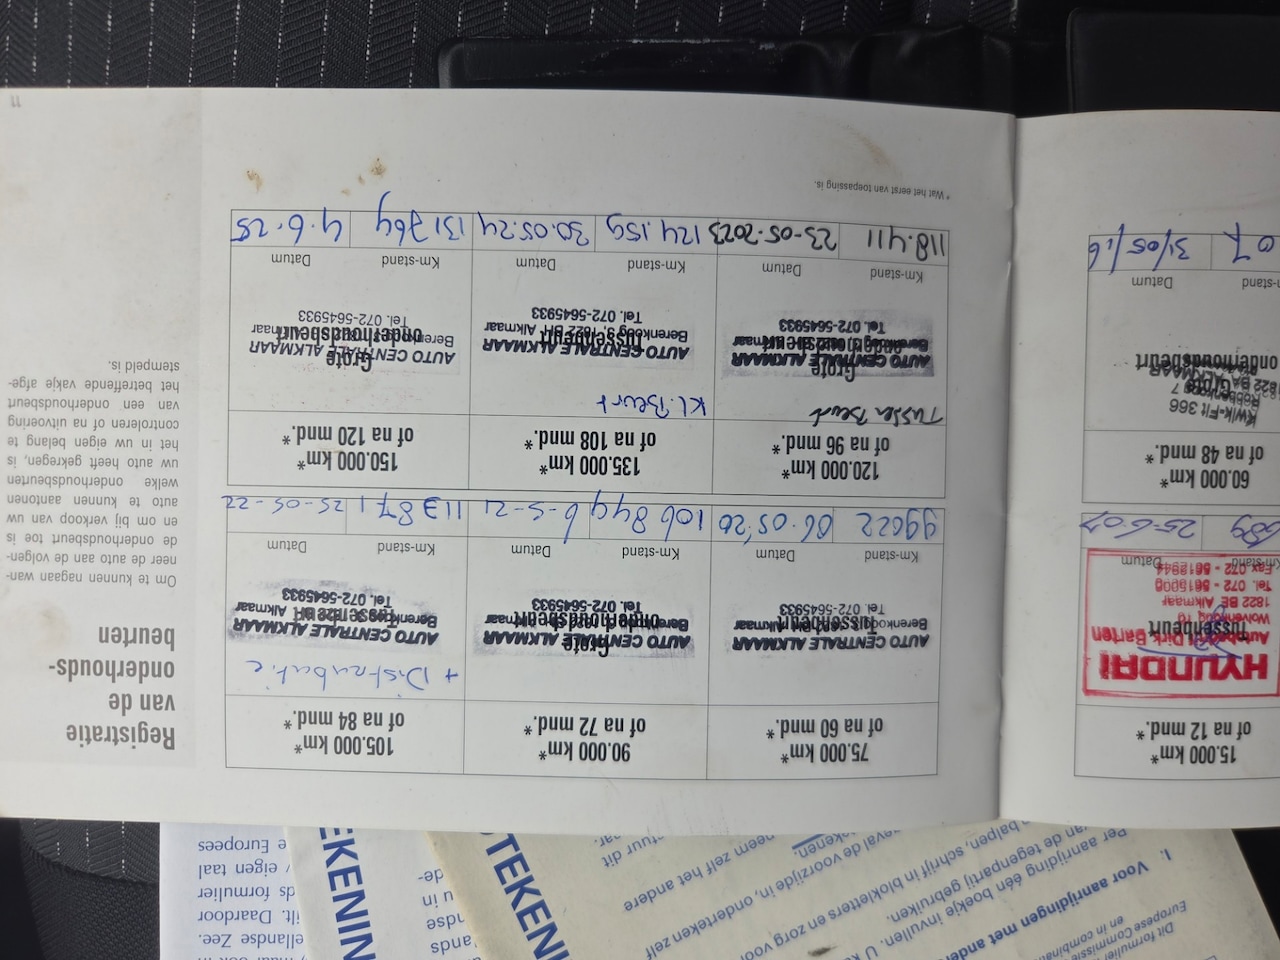 Dit formulier
Europese Commissie en
in combina
Voor aanrijdingen met ander
1.
Per aanrijding één boekje invullen. U k
van de tegenpartij gebruiken.
balpen, schrijf in blokletters en zorg voor
geval de voorzijde in, onderteken zelf
neem zelf het andere
TEKEN
EKENIN
ellandse Zee.
ilt. Daardoor
ds formulier
/ eigen taal
e Europees
15.000 km*
of na 12 mnd.*
HYUNDAI
Autobedrijf Dirk Barten
Wolvenkoog 10
1822 BE Alkmaar
Tel. 072 - 5615008
Fax 072 - 5612944
Tussenbeurt
Km-stand
Datum
25-6-07
60.000 km*
of na 48 mnd.*
Kwik-Fit 366
ALKMAAR
Grote
onderhoudsbeurt
Km-stand
Datum
31/05/16
75.000 km*
of na 60 mnd.*
AUTO CENTRALE ALKMAAR
Tussenbeurt
Tel. 072-5645933
Km-stand
Datum
99022
06.05.20
90.000 km*
of na 72 mnd.*
AUTO CENTRALE ALKMAAR
Grote
onderhoudsbeurt
Tel. 072-5645933
Km-stand
Datum
106849
6-5-21
105.000 km*
of na 84 mnd.*
+ Distributie
AUTO CENTRALE ALKMAAR
Tussenbeurt
Tel. 072-5645933
113871
25-05-22
120.000 km*
of na 96 mnd.*
Tussen Beurt
AUTO CENTRALE ALKMAAR
Grote
onderhoudsbeurt
Tel. 072-5645933
Km-stand
Datum
118.411
23-05-2023
135.000 km*
of na 108 mnd.*
Kl. Beurt
AUTO CENTRALE ALKMAAR
Berenkoog 9, 1822 BH Alkmaar
Tussenbeurt
Tel. 072-5645933
Km-stand
Datum
124.159
30.05.24
150.000 km*
of na 120 mnd.*
AUTO CENTRALE ALKMAAR
Grote
onderhoudsbeurt
Tel. 072-5645933
Km-stand
Datum
131764
4.6.25
* Wat het eerst van toepassing is.
Registratie
van de
onderhouds-
beurten
Om te kunnen nagaan wan-
neer de auto aan de volgen-
de onderhoudsbeurt toe is
en om bij verkoop van uw
auto te kunnen aantonen
welke onderhoudsbeurten
uw auto heeft gekregen, is
het in uw eigen belang te
controleren of na uitvoering
van een onderhoudsbeurt
het betreffende vakje afge-
stempeld is.
11